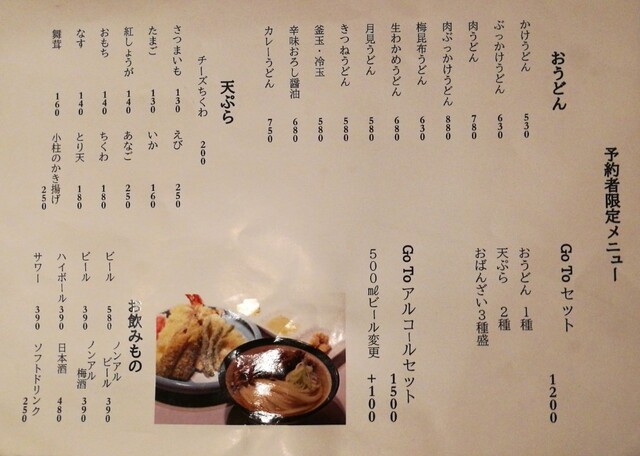 予約者限定メニュー
おうどん
かけうどん 530
ぶっかけうどん 630
肉うどん 780
肉ぶっかけうどん 880
梅昆布うどん 630
生わかめうどん 680
月見うどん 580
きつねうどん 580
釜玉・冷玉 580
辛味おろし醤油 680
カレーうどん 750
天ぷら
チーズちくわ 200
さつまいも 130
えび 250
たまご 130
いか 160
紅しょうが 140
あなご 250
おもち 140
ちくわ 180
なす 140
とり天 180
舞茸 160
小柱のかき揚げ 250
Go To セット 1200
おうどん 1種
天ぷら 2種
おばんざい3種盛
Go To アルコールセット 1500
500㎖ビール変更 +100
お飲みもの
ビール 580
ノンアルビール 390
ビール 390
ノンアル梅酒 390
ハイボール 390
日本酒 480
サワー 390
ソフトドリンク 250